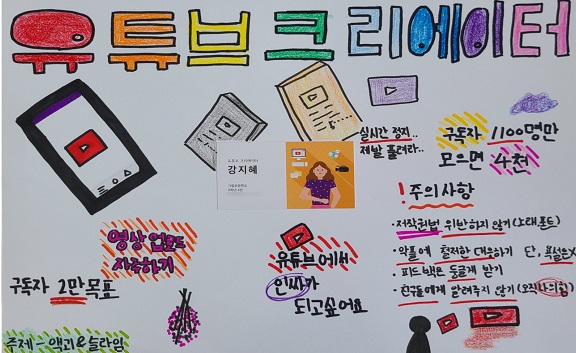 유튜브크리에이터
실시간 정지..
제발 풀려라..
구독자 1100명만
모으면 4천
유튜브 크리에이터
강지혜
! 주의사항
· 저작권법 위반하지 않기 (노래,폰트)
· 악플에 철저한 대응하기 단, 욕설은X
· 피드백은 둥글게 받기
· 친구들에게 알려주지 않기 (오직나의힘)
영상 업로드
자주하기
구독자 2만목표
유튜브에서
인싸가
되고싶어요
주제 - 액괴&슬라임